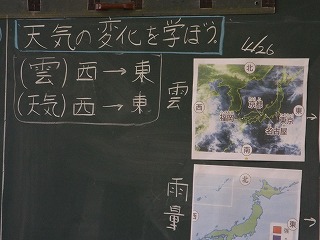 天気の変化を学ぼう
4/26
(雲)西→東
(天気)西→東
雲
北
西
東
南
福岡
京都
東京
名古屋
雨量
北
西
東